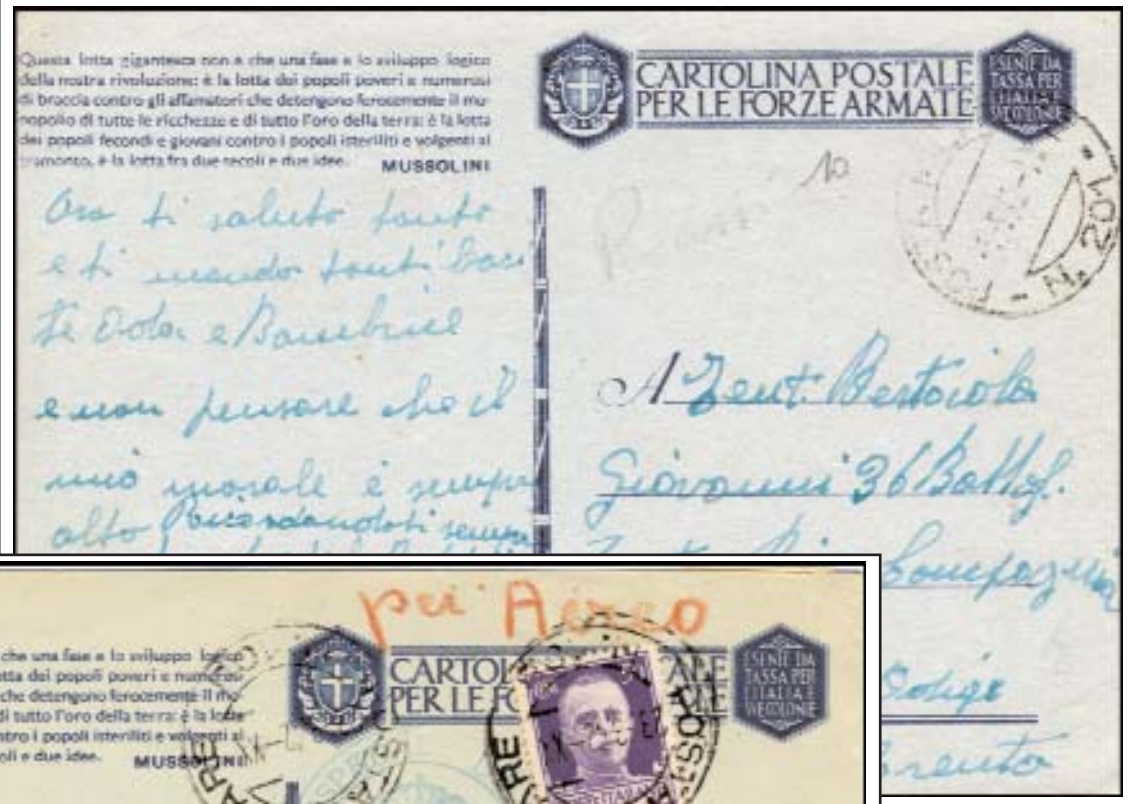 Questa lotta gigantesca non è che una fase e lo sviluppo logico
della nostra rivoluzione: è la lotta dei popoli poveri e numerosi
di braccia contro gli affamatori che detengono ferocemente il mo-
nopolio di tutte le ricchezze e di tutto l'oro della terra: è la lotta
dei popoli fecondi e giovani contro i popoli isteriliti e volgenti al
tramonto, è la lotta fra due secoli e due idee.
MUSSOLINI
CARTOLINA POSTALE
PER LE FORZE ARMATE
ESENTE DA
TASSA PER
L'ITALIA E
LE COLONIE
10
N. 201
Ora ti saluto tanto
e ti mando tanti baci
Te e Bambine
e non pensare che il
mio morale è sempre
alto Ricordandoti sempre
A Bertoiola
Giovanni 36 Battgl.
Compagnia
Trento
per Aereo
che una fase e lo sviluppo logico
lotta dei popoli poveri e numerosi
che detengono ferocemente il mo-
di tutto l'oro della terra: è la lotta
contro i popoli isteriliti e volgenti al
secoli e due idee.
MUSSOLINI
CARTOL ALE
PER LE FO
ESENTE DA
TASSA PER
L'ITALIA E
LE COLONIE